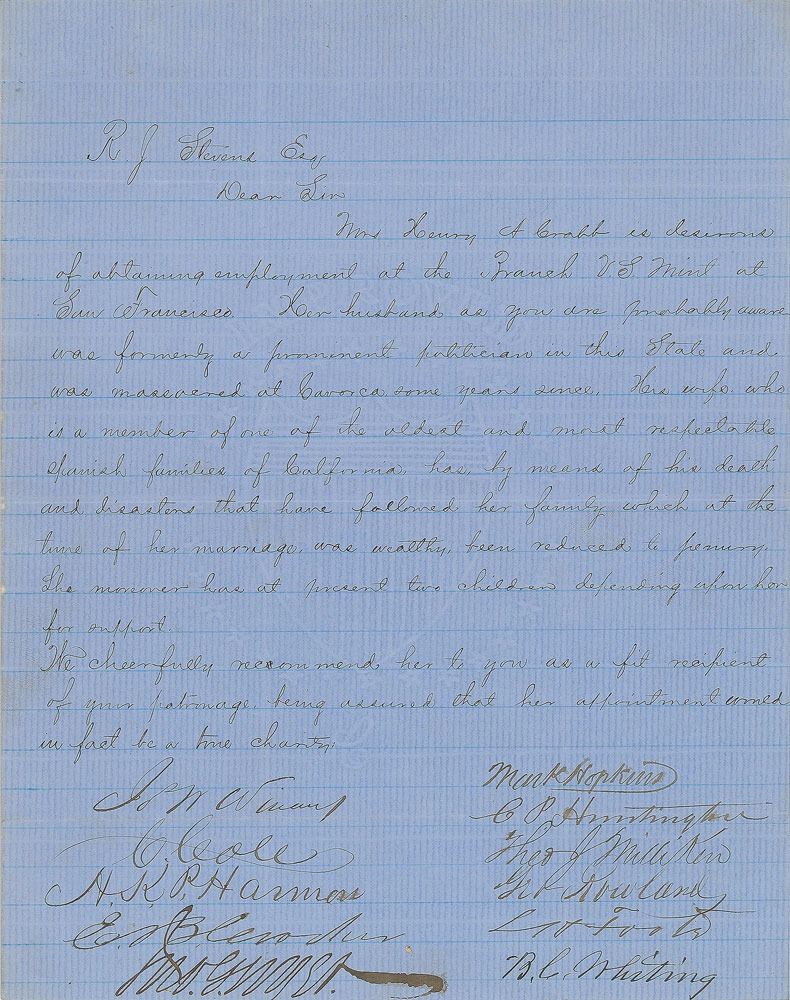 R J Stevens Esq
Dear Sir
Mrs Henry A Crabb is desirous
of obtaining employment at the Branch U.S. Mint at
San Francisco. Her husband as you are probably aware
was formerly a prominent politician in this State and
was massacred at Cavorca some years since. His wife who
is a member of one of the oldest and most respectable
Spanish families of California, has, by means of his death
and disasters that have followed her family which at the
time of her marriage, was wealthy, been reduced to penury.
She moreover has at present two children depending upon her
for support.
We cheerfully recommend her to you as a fit recipient
of your patronage, being assured that her appointment would
in fact be a true charity.
Jos W Winans
Mark Hopkins
C. Cole
C P Huntington
Theo J Milliken
A. K. P. Harmon
Geo Rowland
E B Crocker
L H Foote
B. C. Whiting